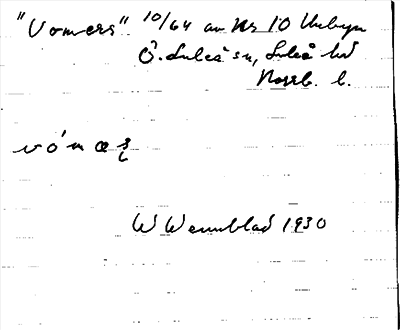 "Vomers" 10/64 av Nr 10 Unbyn
Ö. Luleå sn, Luleå
Norrb. l.
W Wennblad 1930